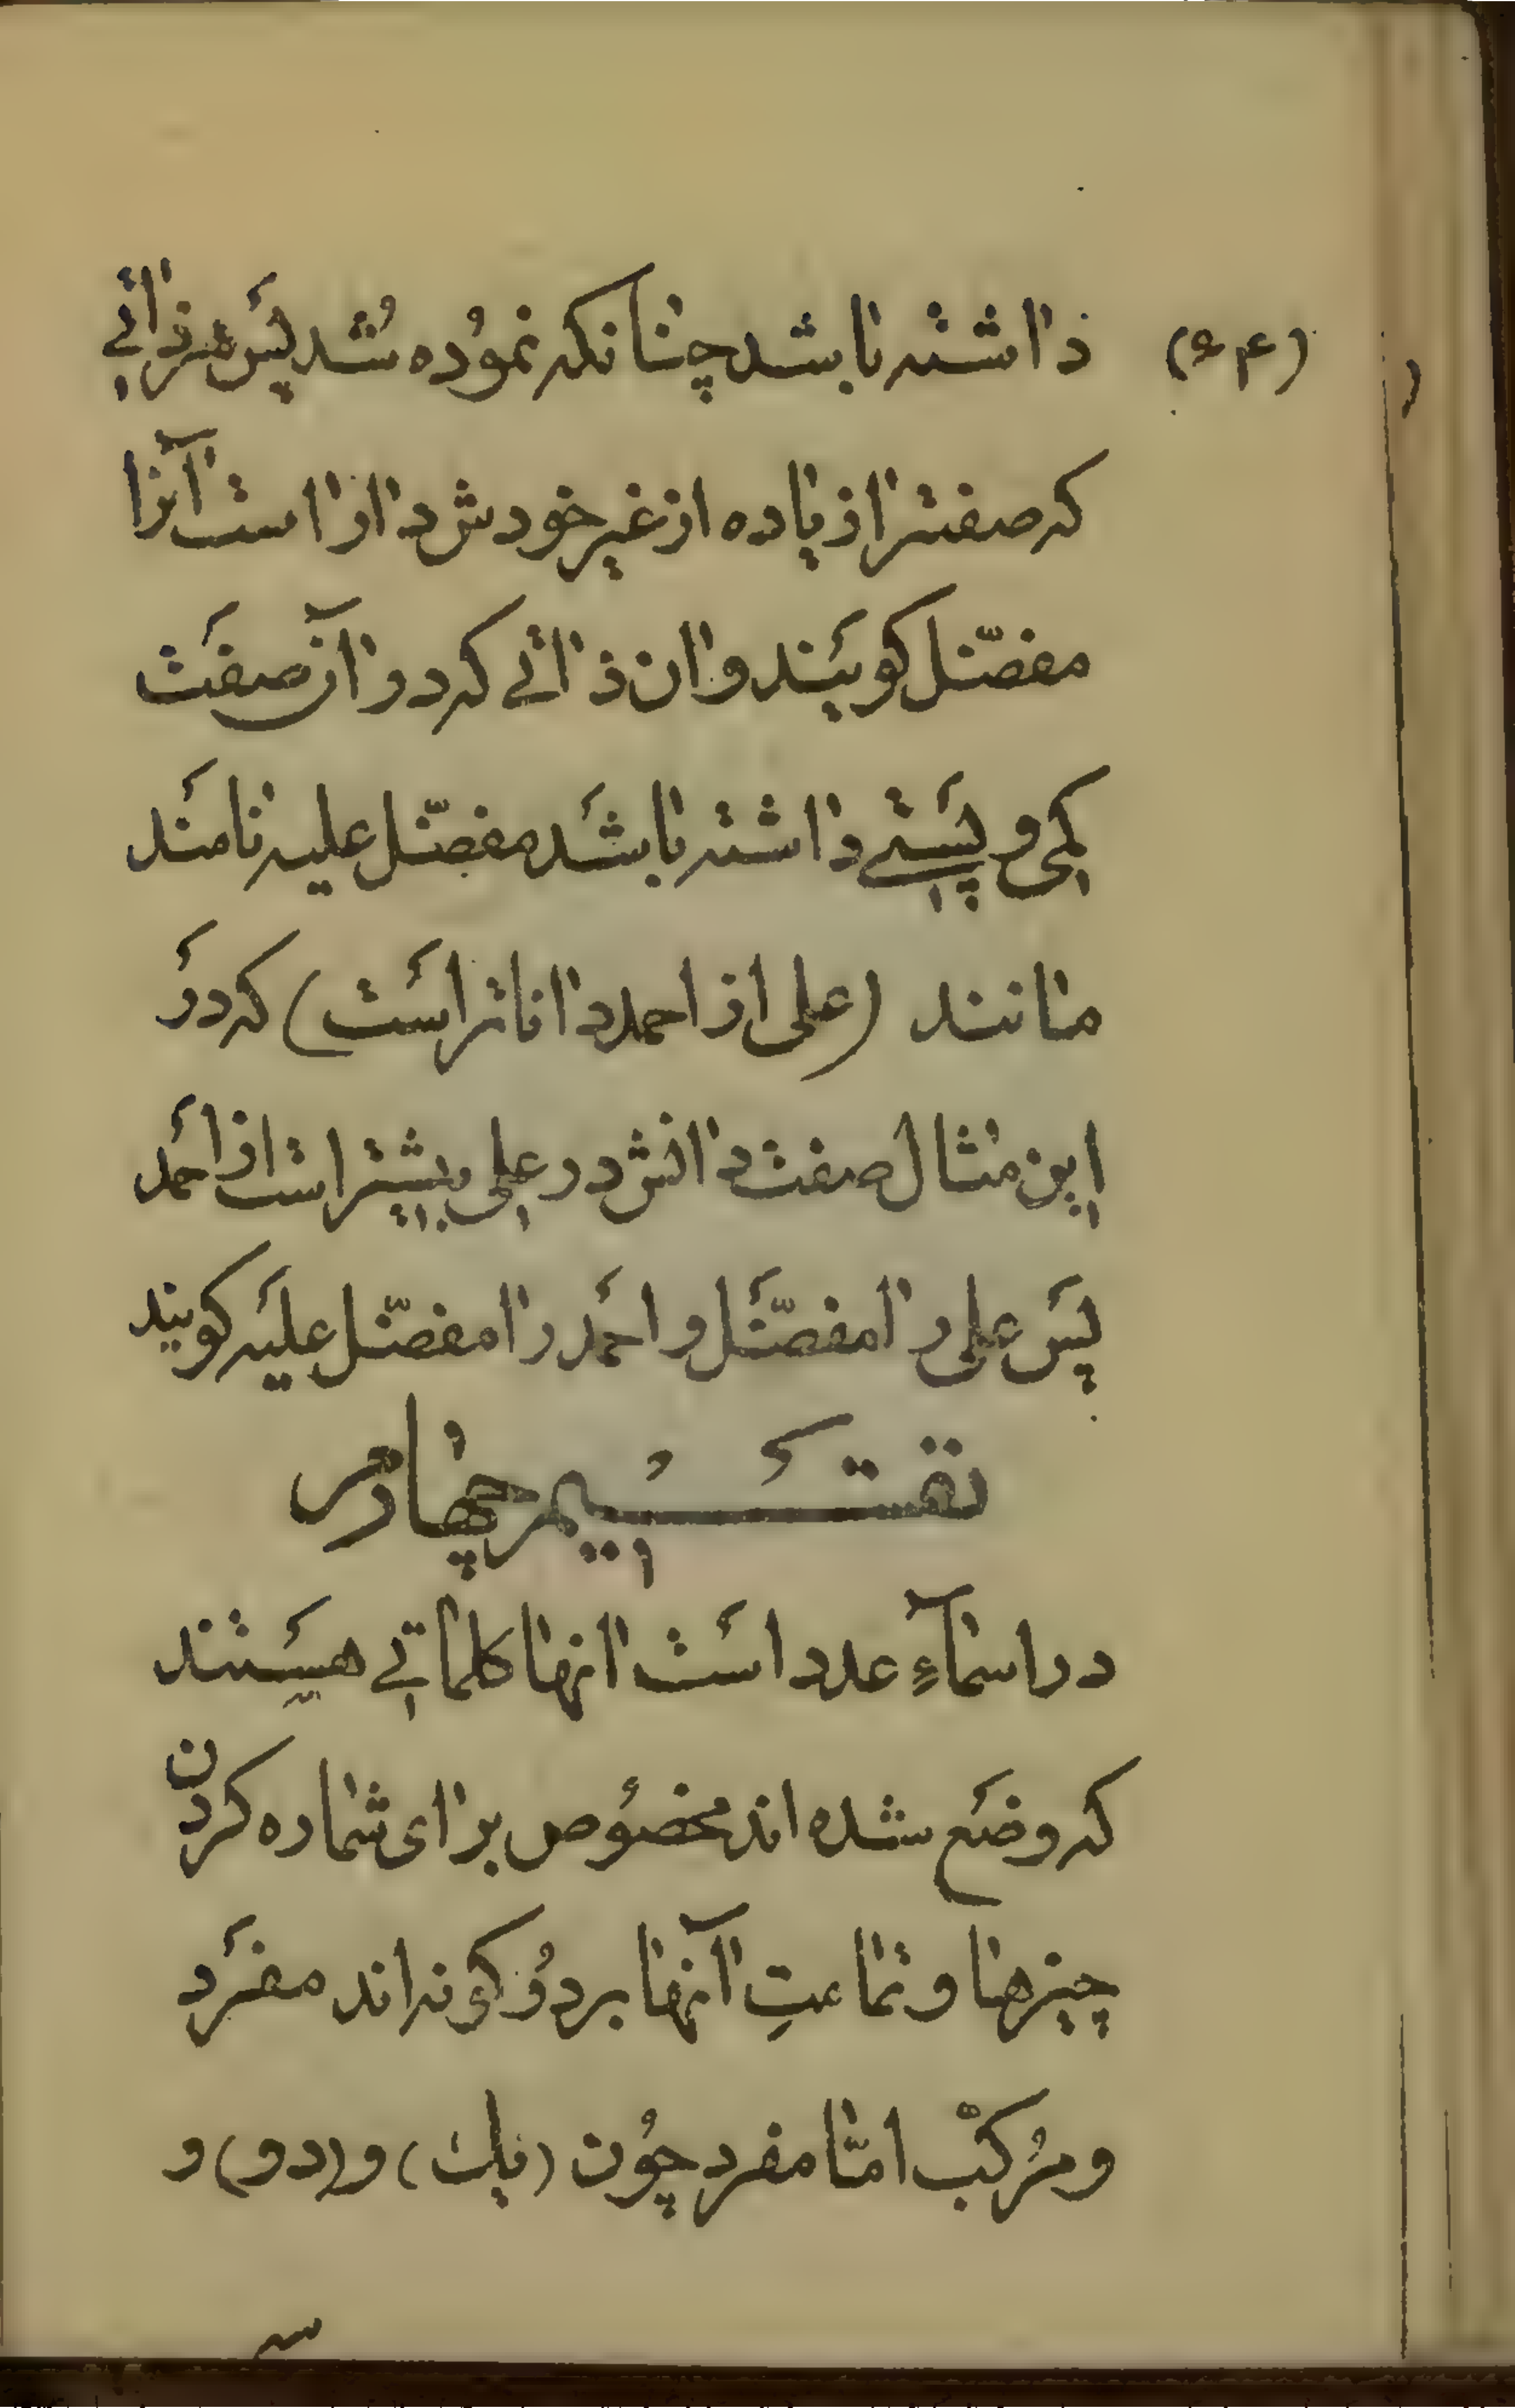 (۹۴) داشته باشد چنانکه نموُده شُد پَس هر ذاتِی
که صفترا زیاده از غیر خودش دارا است آنرا
مفضّل کویَند و ان ذاتی که در آن صفَت
کمی و پَستِی داشته باشَد مفضّل علیه نامَند
مانند (علی از احمد داناتر اسَت) که دَر
این مثال صفت دانش در علی بیشتر است از احمَد
پَس علی را مفضَّل و احمَد را مفضّل علیَه کویند
تقسَیم چهارم
در اسمآءِ عدد اسَت انها کلماتِی هسَتند
که وضَع شده اند مخصوُص برای شماره کردن
چیزها و تماعتِ آنها بر دوُ کونه اند مفرَد
و مُرکبّ امّا مفرد چوُن (یک) و (دو) و
سه